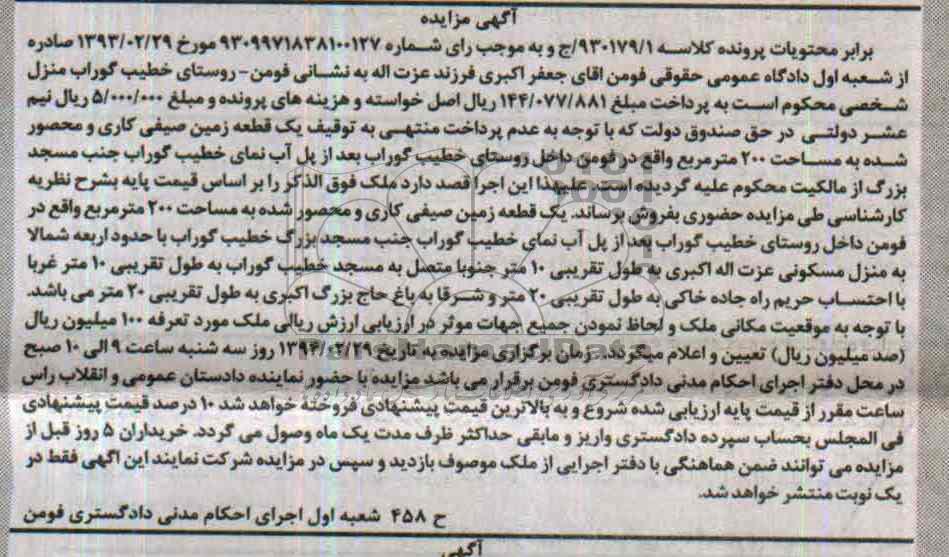 آگهی مزایده
برابر محتویات پرونده کلاسه ۹۳۰۱۷۹/۱/ج و به موجب رای شماره ۹۳۰۹۹۷۱۸۳۸۱۰۰۱۲۷ مورخ ۱۳۹۳/۰۲/۲۹ صادره
از شعبه اول دادگاه عمومی حقوقی فومن اقای جعفر اکبری فرزند عزت اله به نشانی فومن- روستای خطیب گوراب منزل
شخصی محکوم است به پرداخت مبلغ ۱۴۴/۰۷۷/۸۸۱ ریال اصل خواسته و هزینه های پرونده و مبلغ ۵/۰۰۰/۰۰۰ ریال نیم
عشر دولتی در حق صندوق دولت که با توجه به عدم پرداخت منتهی به توقیف یک قطعه زمین صیفی کاری و محصور
شده به مساحت ۲۰۰ مترمربع واقع در فومن داخل روستای خطیب گوراب بعد از پل آب نمای خطیب گوراب جنب مسجد
بزرگ از مالکیت محکوم علیه گردیده است. علیهذا این اجرا قصد دارد ملک فوق الذکر را بر اساس قیمت پایه بشرح نظریه
کارشناسی طی مزایده حضوری بفروش برساند. یک قطعه زمین صیفی کاری و محصور شده به مساحت ۲۰۰ مترمربع واقع در
فومن داخل روستای خطیب گوراب بعد از پل آب نمای خطیب گوراب جنب مسجد بزرگ خطیب گوراب با حدود اربعه شمالا
به منزل مسکونی عزت اله اکبری به طول تقریبی ۱۰ متر جنوبا متصل به مسجد خطیب گوراب به طول تقریبی ۱۰ متر غربا
با احتساب حریم راه جاده خاکی به طول تقریبی ۲۰ متر و شرقا به باغ حاج بزرگ اکبری به طول تقریبی ۲۰ متر می باشد.
با توجه به موقعیت مکانی ملک و لحاظ نمودن جمیع جهات موثر در ارزیابی ارزش ریالی ملک مورد تعرفه ۱۰۰ میلیون ریال
(صد میلیون ریال) تعیین و اعلام میگردد. زمان برگزاری مزایده به تاریخ ۱۳۹۴/۰۲/۲۹ روز سه شنبه ساعت ۹ الی ۱۰ صبح
در محل دفتر اجرای احکام مدنی دادگستری فومن برقرار می باشد مزایده با حضور نماینده دادستان عمومی و انقلاب راس
ساعت مقرر از قیمت پایه ارزیابی شده شروع و به بالاترین قیمت پیشنهادی فروخته خواهد شد ۱۰ درصد قیمت پیشنهادی
فی المجلس بحساب سپرده دادگستری واریز و مابقی حداکثر ظرف مدت یک ماه وصول می گردد. خریداران ۵ روز قبل از
مزایده می توانند ضمن هماهنگی با دفتر اجرایی از ملک موصوف بازدید و سپس در مزایده شرکت نمایند این اگهی فقط در
یک نوبت منتشر خواهد شد.
ح ۴۵۸ شعبه اول اجرای احکام مدنی دادگستری فومن
آگهی